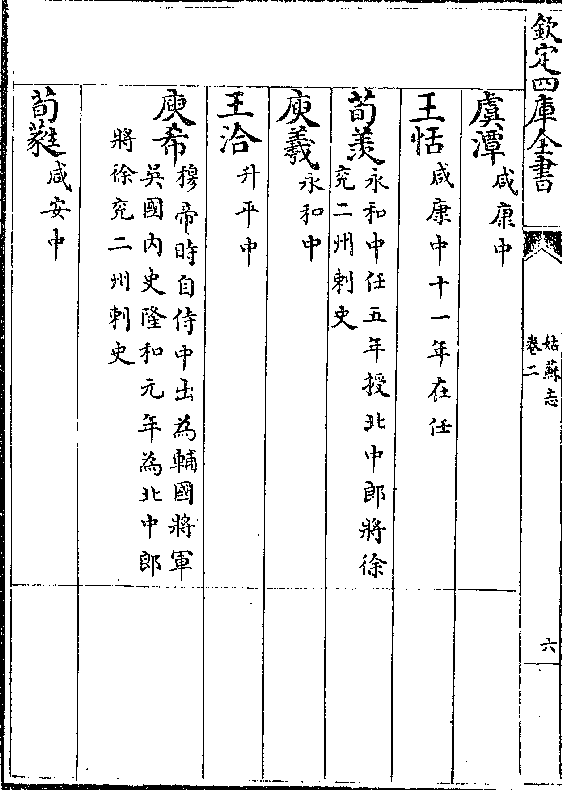 欽定四庫全書
姑蘇志
卷二
六
虞潭咸康中
王恬咸康中十一年在任
荀羨永和中任五年授北中郎將徐
兖二州刺史
庾羲永和中
王洽升平中
庾希穆帝時自侍中出為輔國將軍
吳國內史隆和元年為北中郎
將徐兖二州刺史
荀蕤咸安中